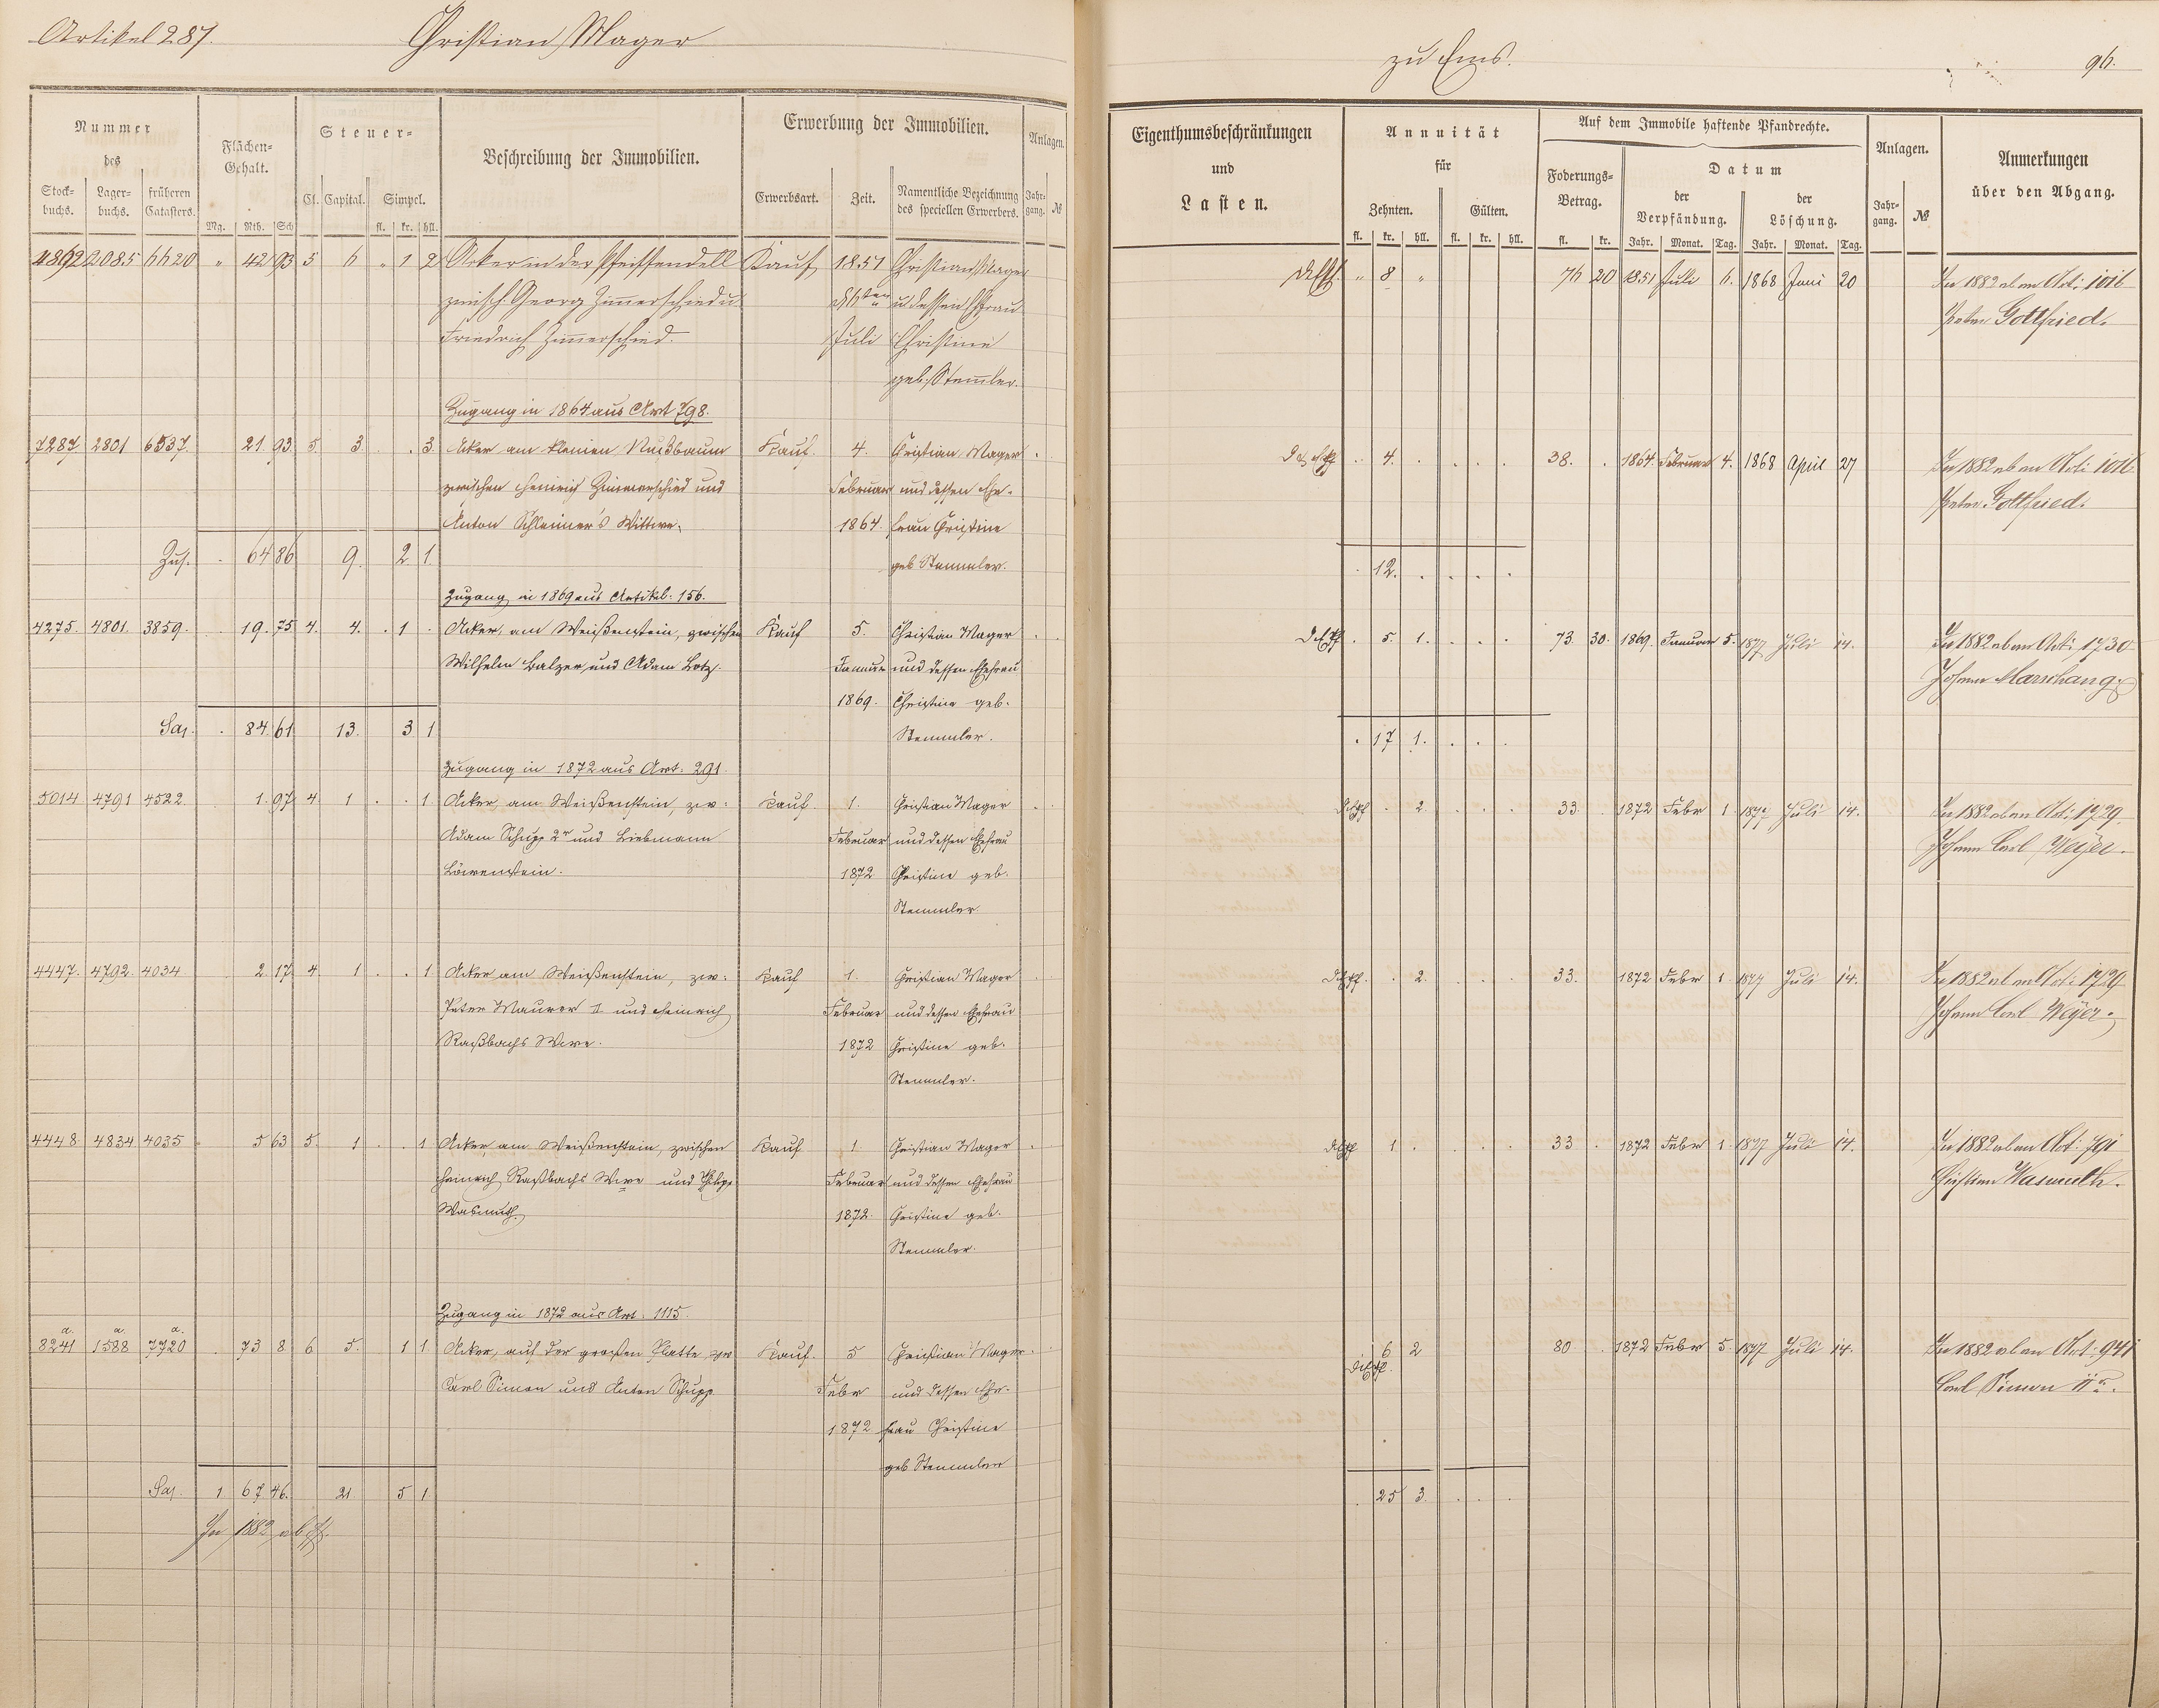 Artikel 287.
Christian Mager
zu Ems.
96.
Nummer
des
Stock-
buchs.
Lager-
buchs.
früheren
Catasters.
Flächen-
Gehalt.
Mg. Rth. Sch
Steuer-
Cl. Capital. Simpel.
fl. kr. hll.
Beschreibung der Immobilien.
Erwerbung der Immobilien.
Erwerbsart. Zeit.
Namentliche Bezeichnung
des speciellen Erwerbers.
Anlagen.
Jahr-
gang. №
Eigenthumsbeschränkungen
und
Lasten.
Annuität
für
Zehnten. Gülten.
fl. kr. hll. fl. kr. hll.
Auf dem Immobile haftende Pfandrechte.
Foderungs-
Betrag.
fl. kr.
Datum
der
Verpfändung.
Jahr. Monat. Tag.
der
Löschung.
Jahr. Monat. Tag.
Anlagen.
Jahr-
gang. №
Anmerkungen
über den Abgang.
4892 2085 6620 " 42 93 5 6 " 1 2 Acker in der Pfeiffendell Kauf 1851 Christian Mager " 8 " 76 20 1851 Juli 6. 1868 Juni 20 In 1882 ab an Art: 1016
zwisch. Georg Zimmerschied u. d 6ten u. dessen Ehefrau Peter Gottfried.
Friedrich Zimmerschied. Juli Christine
geb. Stemler.
Zugang in 1864 aus Art 798.
7287 2801 6537. 21 93 5 3 . . 3 Acker am kleinen Nußbaum Kauf. 4. Christian Mager . 4. . 38. . 1864. Februar 4. 1868 April 27 In 1882 ab an Art: 1016
zwischen Heinrich Zimmerschied und Februar und dessen Ehe- Peter Gottfried.
Anton Schleimer's Wittwe. 1864. frau Christine
Zus. . 64 86 9. 2 1 geb. Stemmler. . 12. . . . .
Zugang in 1869 aus Artikel. 156.
4275. 4801. 3859. . 19. 75 4. 4. . 1 . Acker, am Weißenstein, zwischen Kauf 5. Christian Mager . 5. 1. 73. 30. 1869. Januar 5. 1877 Juli 14. In 1882 ab an Art: 1730
Wilhelm Balzer und Adam Lotz. Januar und dessen Ehefrau Johann Marschang.
1869. Christine geb.
Sa. . 84. 61 13. 3 1 Stemmler. . 17 1. . . .
Zugang in 1872 aus Art. 291.
5014 4791 4522. 1. 97 4 1 . . 1 Acker, am Weißenstein, zw: Kauf. 1. Christian Mager . 2. 33. 1872 Febr 1 1877 Juli 14. In 1882 ab an Art: 1729.
Adam Schupp 2r und Liebmann Februar und dessen Ehefrau Johann Carl Weyer.
Löwenstein. 1872 Christine geb.
Stemmler.
4447. 4792. 4034 2. 17 4 1 . . 1 Acker am Weißenstein, zw: Kauf 1. Christian Mager . 2. 33. 1872 Febr 1. 1877 Juli 14. In 1882 ab an Art: 1729
Peter Maurer II und Heinrich Februar und dessen Ehefrau Johann Carl Weyer.
Raßbachs Wwe. 1872 Christine geb.
Stemmler.
4448. 4834. 4035 5 63 5. 1 . . 1 Acker, am Weißenstein, zwischen Kauf 1. Christian Mager 1 . 33 . 1872 Febr 1. 1877 Juli 14. In 1882 ab an Art: 791
Heinrich Raßbachs Wwe und Philipp Februar und dessen Ehefrau Christian Wasmuth.
Wasmuth. 1872. Christine geb.
Stemmler.
Zugang in 1872 aus Art: 1115.
a. a. a.
8241 1588 7720 . 73 8 6 5. 1 1 Acker, auf der großen Platte zw Kauf. 5 Christian Mager 6 2 80 . 1872 Febr 5. 1877 Juli 14. In 1882 ab an Art: 941
Carl Simon und Anton Schupp Febr und dessen Ehe- Carl Simon IIr.
1872. frau Christine
geb. Stemmler
Sa. 1 67 46. 21 5 1 . 25 3. . . .
In 1882 ab